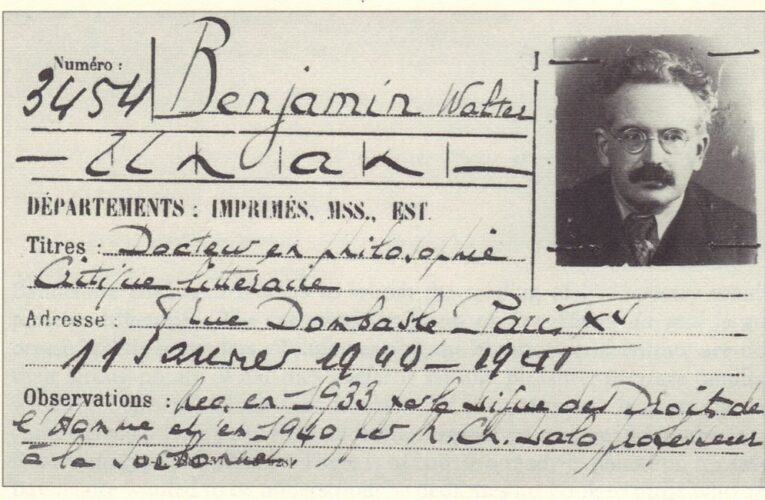 Numéro :
3454 Benjamin Walter
DÉPARTEMENTS : IMPRIMÉS, MSS., EST.
Titres : Docteur en philosophie
Critique littéraire
Adresse : rue Dombasle Paris XV
11 Janvier 1940 - 1941
Observations : rec. en 1933 par la Ligue des Droits de
l'Homme et en 1940 par M. Ch. Lalo professeur
à la Sorbonne